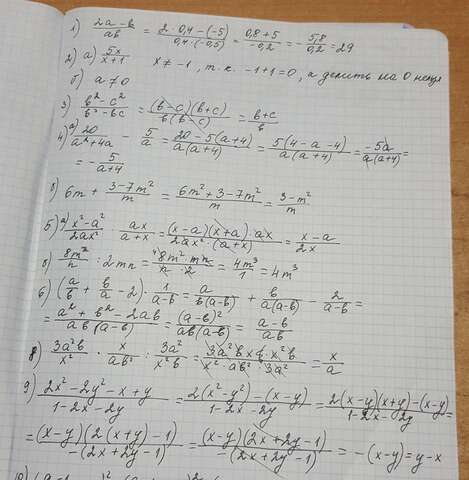 1) (2a-b)/(ab) = (2·0,4-(-5))/(0,4·(-0,5)) = (0,8+5)/(-0,2) = -5,8/0,2 = 29
2) а) 5x/(x+1)   x ≠ -1, т.к. -1+1=0, а делить на 0 нельзя
б) a ≠ 0
3) (b²-c²)/(b²-bc) = ((b-c)(b+c))/(b(b-c)) = (b+c)/b
4) а) 20/(a²+4a) - 5/a = (20-5(a+4))/(a(a+4)) = (5(4-a-4))/(a(a+4)) = -5a/(a(a+4)) =
= -5/(a+4)
б) 6m + (3-7m²)/m = (6m²+3-7m²)/m = (3-m²)/m
5) а) (x²-a²)/(2ax²) · ax/(a+x) = ((x-a)(x+a)·ax)/(2ax²·(a+x)) = (x-a)/(2x)
: 2mn = = 4m³/1 = 4m³
6) (a/b + b/a - 2) · 1/(a-b) = a/(b(a-b)) + b/(a(a-b)) - 2/(a-b) =
= (a²+b²-2ab)/(ab(a-b)) = (a-b)²/(ab(a-b)) = (a-b)/(ab)
8) 3a²b/x² · x/(ab²) : 3a²/(x²b) = = x/a
9) (2x²-2y²-x+y)/(1-2x-2y) = (2(x²-y²)-(x-y))/(1-2x-2y) = (2(x-y)(x+y)-(x-y))/(1-2x-2y) =
= ((x-y)(2(x+y)-1))/(-(2x+2y-1)) = ((x-y)(2x+2y-1))/(-(2x+2y-1)) = -(x-y) = y-x